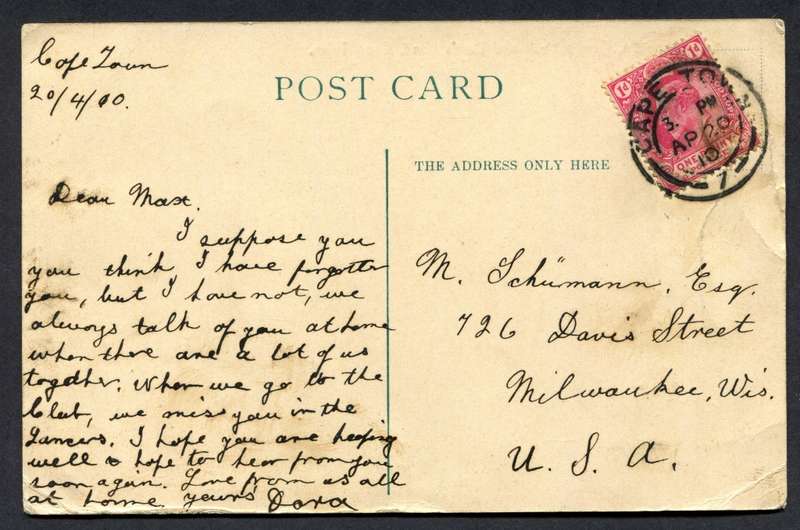 Cape Town
20/4/10.
POST CARD
1d 1d
ONE PENNY
CAPE TOWN
3. PM
AP 20
10
7
THE ADDRESS ONLY HERE
Dear Max.
I suppose you
you think I have forgotten
you, but I have not, we
always talk of you at home
when there are a lot of us
together. When we go to the
Club, we miss you in the
Lancers. I hope you are keeping
well & hope to hear from you
soon again. Love from us all
at home yours Dora
M. Schümann, Esq.
726 Davis Street
Milwaukee, Wis.
U. S. A.